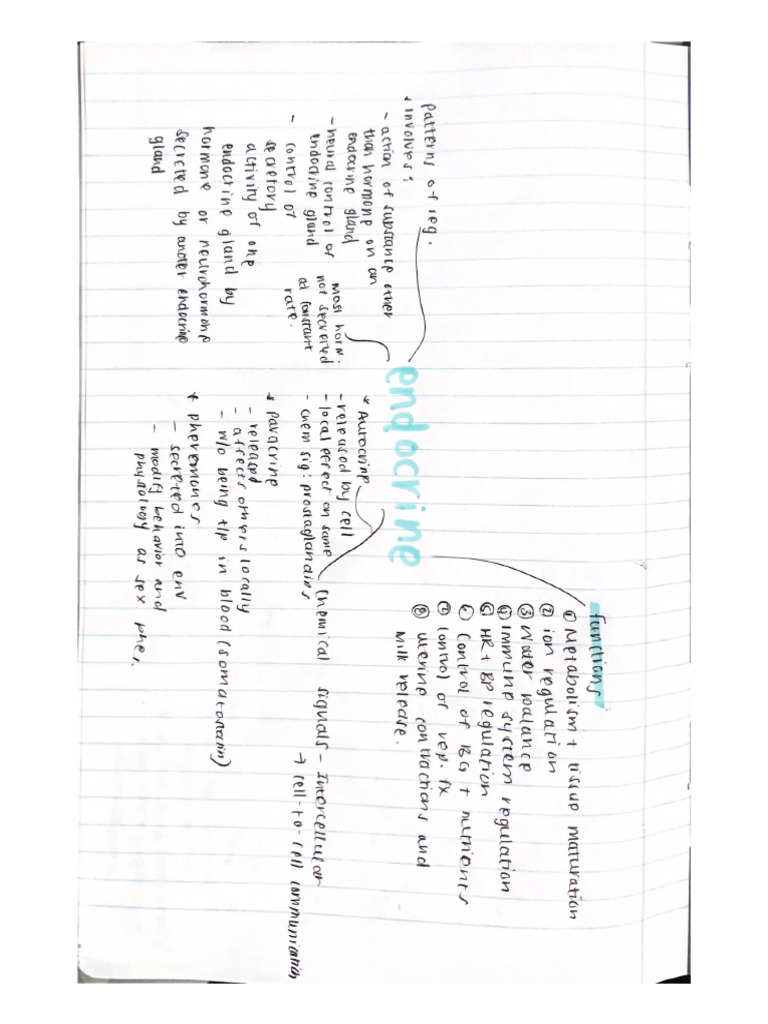 endocrine
functions
① Metabolism + tissue maturation
② ion regulation
③ Water balance
④ Immune system regulation
⑤ HR + BP regulation
⑥ Control of BG + nutrients
⑦ Control of rep. fx
⑧ uterine contractions and
milk release.
patterns of reg.
* involves:
- action of substance other
than hormone on an
endocrine gland
- neural control of
endocrine gland
- control of
secretory
activity of one
endocrine gland by
hormone or neurohormone
secreted by another endocrine
gland
most horm.
not secreted
at constant
rate.
chemical signals - Intercellular
→ cell-to-cell communication
* Autocrine
- released by cell
- local effect on same
- chem sig: prostaglandins
* paracrine
- released
- affects others locally
- w/o being t/p in blood (somatostatin)
* pheromones
- secreted into env
- modify behavior and
physiology as sex phe.